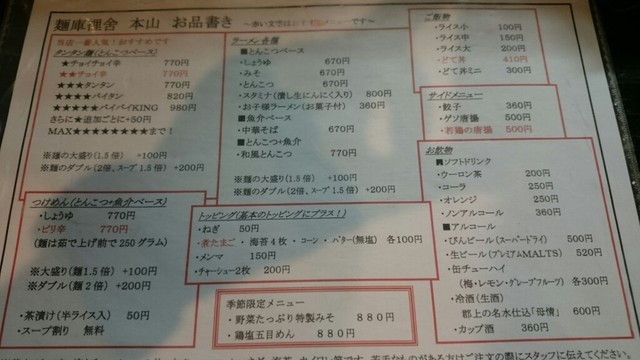 麺庫狸舎 本山 お品書き ～赤い文字はおすすめメニューです～
当店一番人気!おすすめです
タンタン麺(とんこつベース)
★チョイチョイ辛 770円
★★チョイ辛 770円
★★★タンタン 770円
★★★★パイタン 820円
★★★★★パイパイKING 980円
さらに★追加ごとに+50円
MAX★★★★★★★★まで!
※麺の大盛り(1.5倍) +100円
※麺のダブル(2倍、スープ1.5倍) +200円
つけめん(とんこつ+魚介ベース)
・しょうゆ 770円
・ピリ辛 770円
(麺は茹で上げ前で250グラム)
※大盛り(麺1.5倍) +100円
※ダブル(麺2倍) +200円
・茶漬け(半ライス入) 50円
・スープ割り 無料
ラーメン各種
■とんこつベース
・しょうゆ 670円
・みそ 670円
・とんこつ 670円
・スタミナ(潰し生にんにく入り) 800円
・お子様ラーメン(お菓子付) 360円
■魚介ベース
・中華そば 670円
■とんこつ+魚介
・和風とんこつ 770円
※麺の大盛り(1.5倍) +100円
※麺のダブル(2倍、スープ1.5倍) +200円
トッピング(基本のトッピングにプラス!)
・ねぎ 50円
・煮たまご ・海苔4枚 ・コーン ・バター(無塩) 各100円
・メンマ 150円
・チャーシュー2枚 200円
季節限定メニュー
・野菜たっぷり特製みそ 880円
・鶏塩五目めん 880円
ご飯物
・ライス小 100円
・ライス中 150円
・ライス大 200円
・どて丼 410円
・どて丼ミニ 300円
サイドメニュー
・餃子 360円
・ゲソ唐揚 500円
・若鶏の唐揚 500円
お飲物
■ソフトドリンク
・ウーロン茶 200円
・コーラ 250円
・オレンジ 250円
・ノンアルコール 360円
■アルコール
・びんビール(スーパードライ) 500円
・生ビール(プレミアムMALTS) 520円
・缶チューハイ
(梅・レモン・グレープフルーツ) 各300円
・冷酒(生酒)
郡上の名水仕込「母情」 600円
・カップ酒 360円
がある方はご注文の際にスタッフに伝えてください。